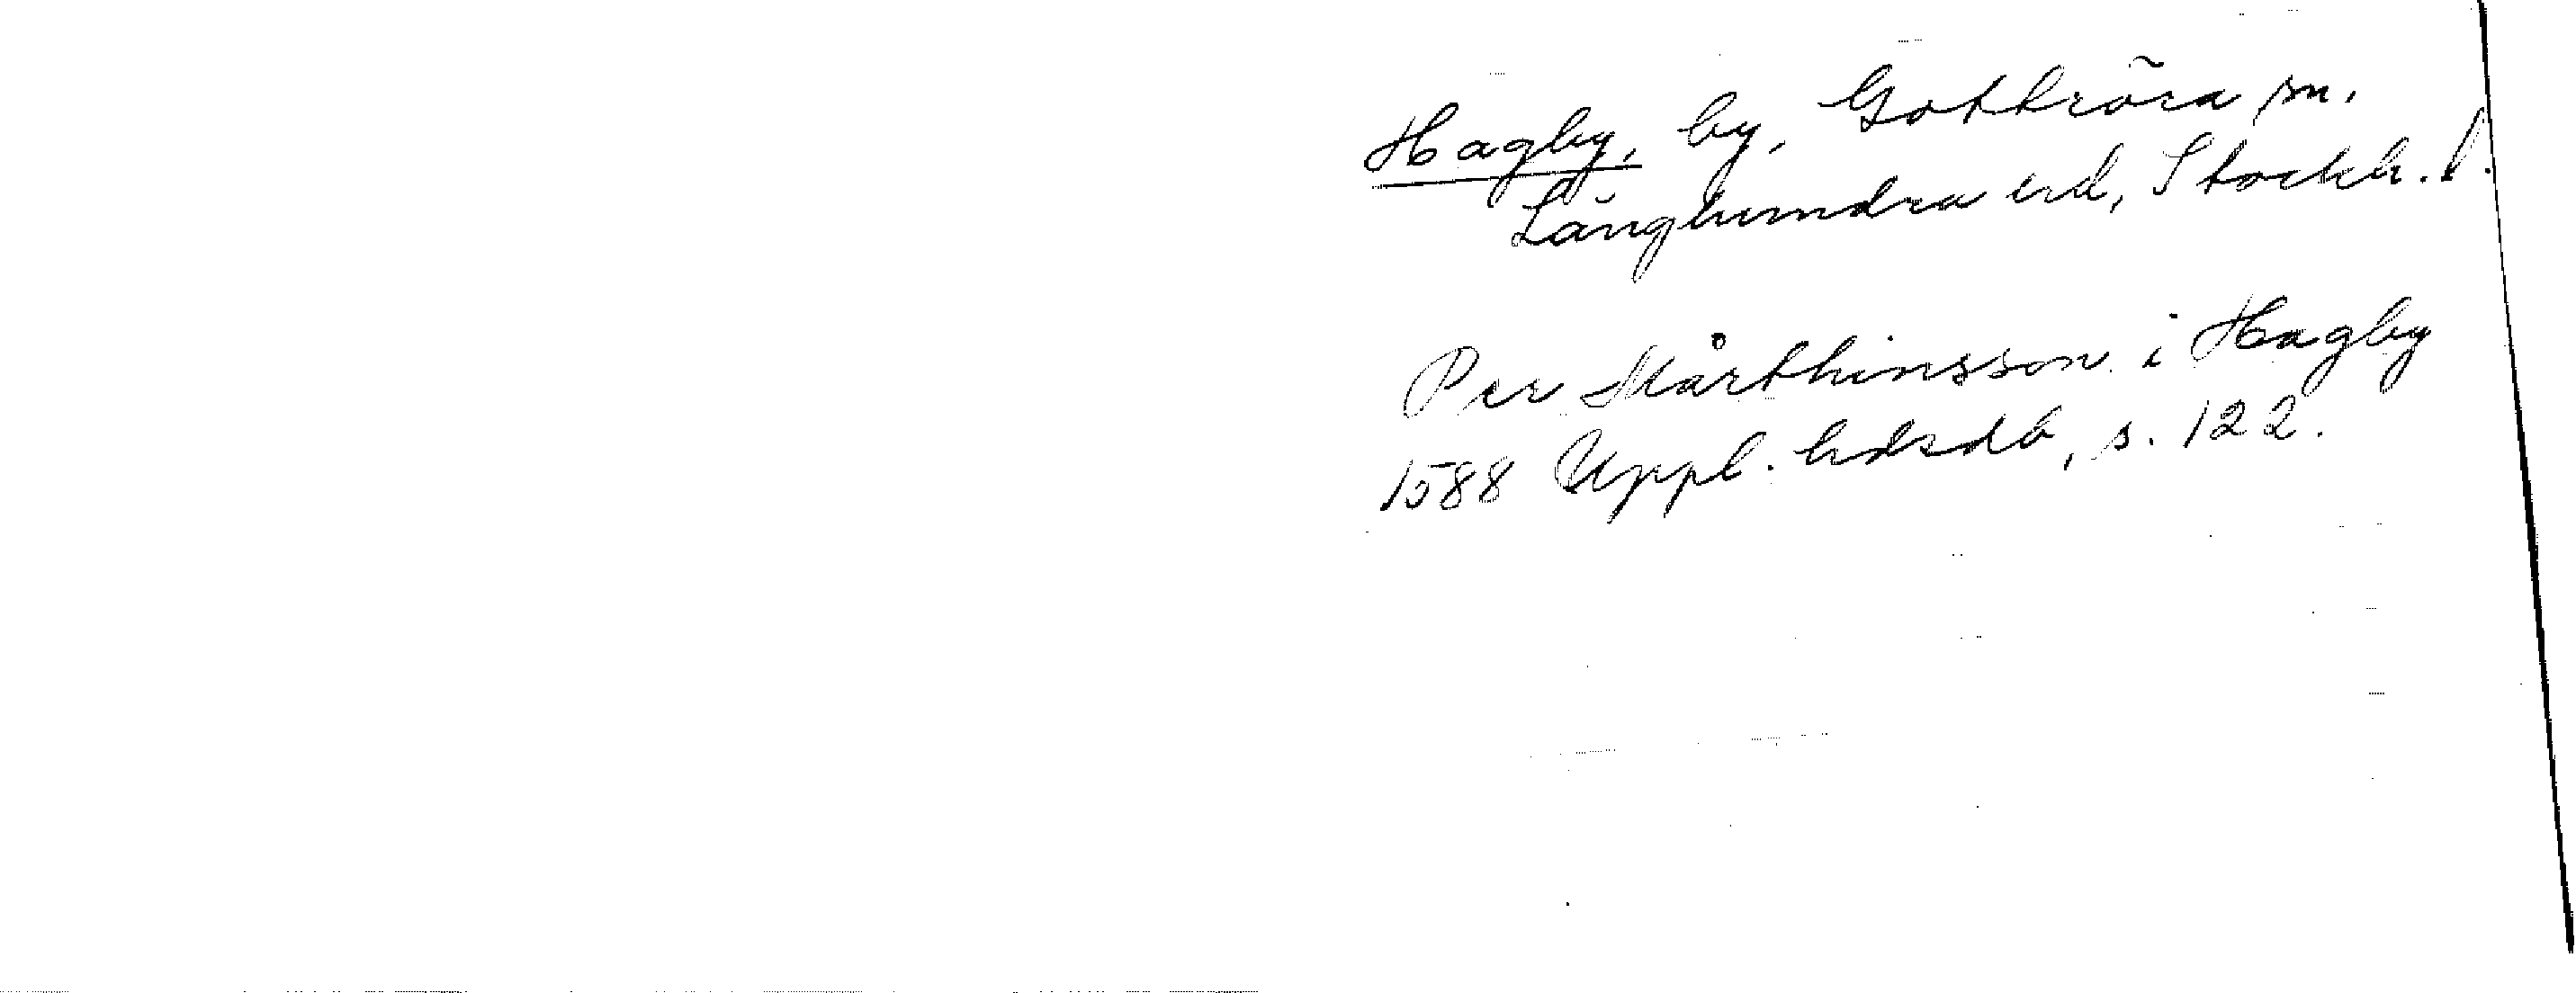 Hagby, by, Gottröra sn.
Långhundra hd, Stockh. l.
Per Mårthinsson i Hagby
1588 Uppl. hdsdb, s. 122.